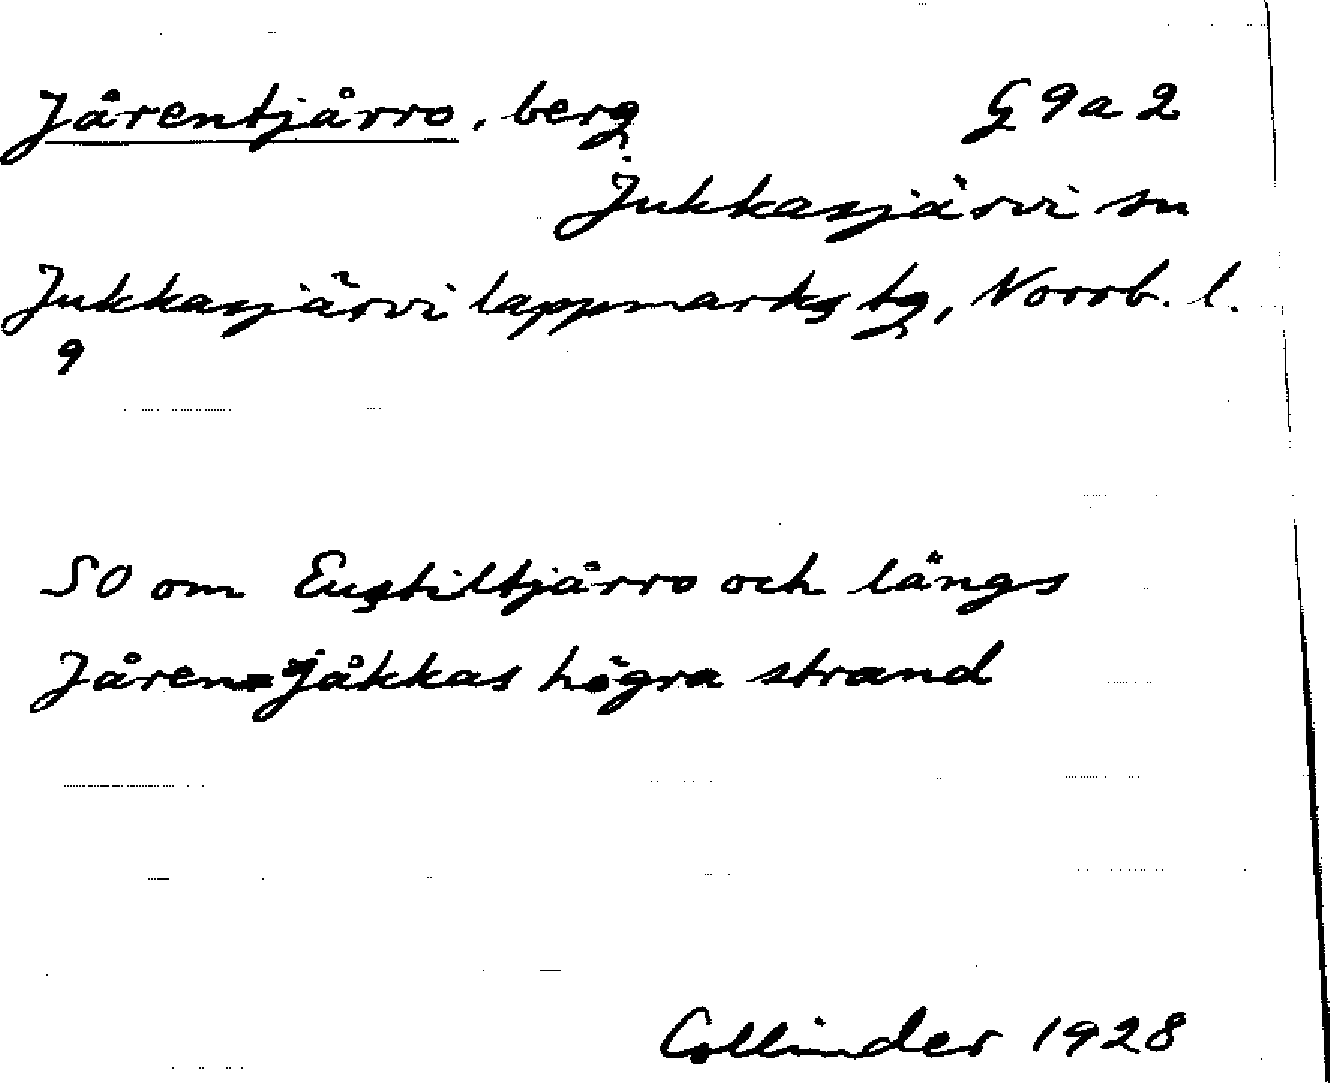 Jårentjårro, berg G9a2
Jukkasjärvi sn
Jukkasjärvi lappmarks tg, Norrb. l.
9
SO om Eustiltjårro och längs
Jåren-jåkkas högra strand
Collinder 1928